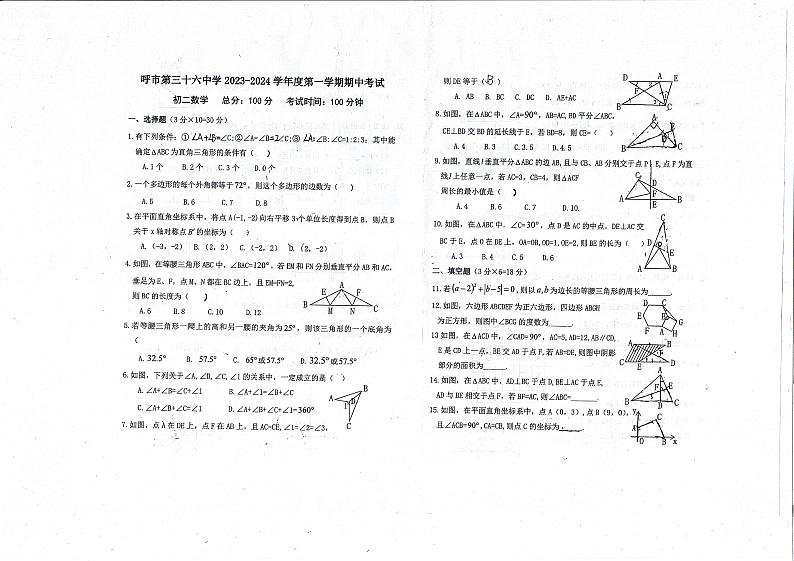 呼市第三十六中学 2023-2024 学年度第一学期期中考试
初二数学 总分：100 分 考试时间：100 分钟
一、选择题（3 分×10=30 分）
1. 有下列条件：① ∠A+∠B=∠C;②∠A=∠B=2∠C;③ ∠A:∠B:∠C=1:2:3；其中能
确定△ABC 为直角三角形的条件有（ ）
A.1 个 B.2 个 C.3 个 D.0 个
2. 一个多边形的每个外角都等于72°，则这个多边形的边数为（ ）
A.5 B.6 C.7 D.8
3. 在平面直角坐标系中，将点 A(-1,-2)向右平移 3 个单位长度得到点 B，则点 B
关于 x 轴对称点 B′的坐标为（ ）
A. (-3, -2) B. (2, 2) C. (-2, 2) D. (2, -2)
4. 如图，在等腰三角形 ABC 中，∠BAC=120°，若 EM 和 FN 分别垂直平分 AB 和 AC，
垂足为 E、F，点 M、N 都在 BC 边上，且 EM=FN=2,
则 BC 的长度为（ ）
A.6 B.8 C.10 D.12
E A F
B M N C
5. 若等腰三角形一腰上的高和另一腰的夹角为25°，则该三角形的一个底角为
（
A. 32.5° B. 57.5° C. 65°或57.5° D. 32.5°或57.5°
6. 如图，下列关于∠A,∠D,∠C,∠1 的关系中，一定成立的是（ ）
A. ∠A+∠B=∠C+∠1 B. ∠A+∠1=∠B+∠C
C. ∠A+∠B+∠C=∠1 D. ∠A+∠B+∠C+∠1=360°
A B
1 D
C
7. 如图，点 A 在 DE 上，点 F 在 AB 上，且 AC=CE,∠1=∠2=∠3,
则 DE 等于（ B ）
A. AB B. BC C. DC D. AE+AC
D A E
F
B C
8. 如图，在△ABC 中，∠A=90°，AB=AC,BD 平分∠ABC,
CE⊥BD 交 BD 的延长线于 E，若 BD=8，则 CE=（ ）
A.4 B.3 C.3.5 D.4.5
9. 如图，直线 l 垂直平分△ABC 的边 AB,且与 CB、AB 分别交于点 D、E,点 F 为直
线 l 上任意一点，若 AC=3，CB=4，则△ACF
周长的最小值是（ ）
A.4 B.6 C.7 D.10.
10. 如图，在△ABC 中，∠C=30°，点 D 是 AC 的中点，DE⊥AC 交
BC 于 E，点 O 在 DE 上，OA=OB,OD=1,OE=2,则 BE 的长为（ ）
A.3 B.4 C.5 D.6
二、填空题（3 分×6=18 分）
11. 若(a-2)²+|b-5|=0 ,则以 a,b 为边长的等腰三角形的周长为
12. 如图，六边形 ABCDEF 为正六边形，四边形 ABGH
为正方形，则图中∠BCG 的度数为
13 如图，在△ACD 中，∠CAD=90°，AC=5,AD=12,AB∥CD,
E 是 CD 上一点，BE 交 AD 于点 F,若 AB=DE,则图中阴影
部分的面积为
14. 如图，在△ABC 中，AD⊥BC 于点 D,BE⊥AC 于点 E,
AD 与 BE 相交于点 F，若 BF=AC,则∠ABC=
15. 如图，在平面直角坐标系中，点 A（0，3）,点 B（9，0），
且∠ACB=90°,CA=CB,则点 C 的坐标为
y
C
A
O B x